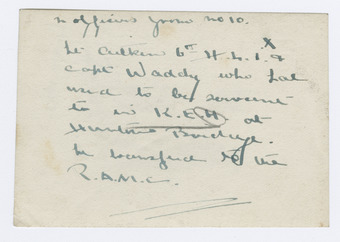 n officers from no 10.
Lt Aitken 6th H.L.I. & x
Capt Waddy who Lal
used to be servant
to in K.E.H at
Bordeje.
he transferred to the
R.A.M.C.